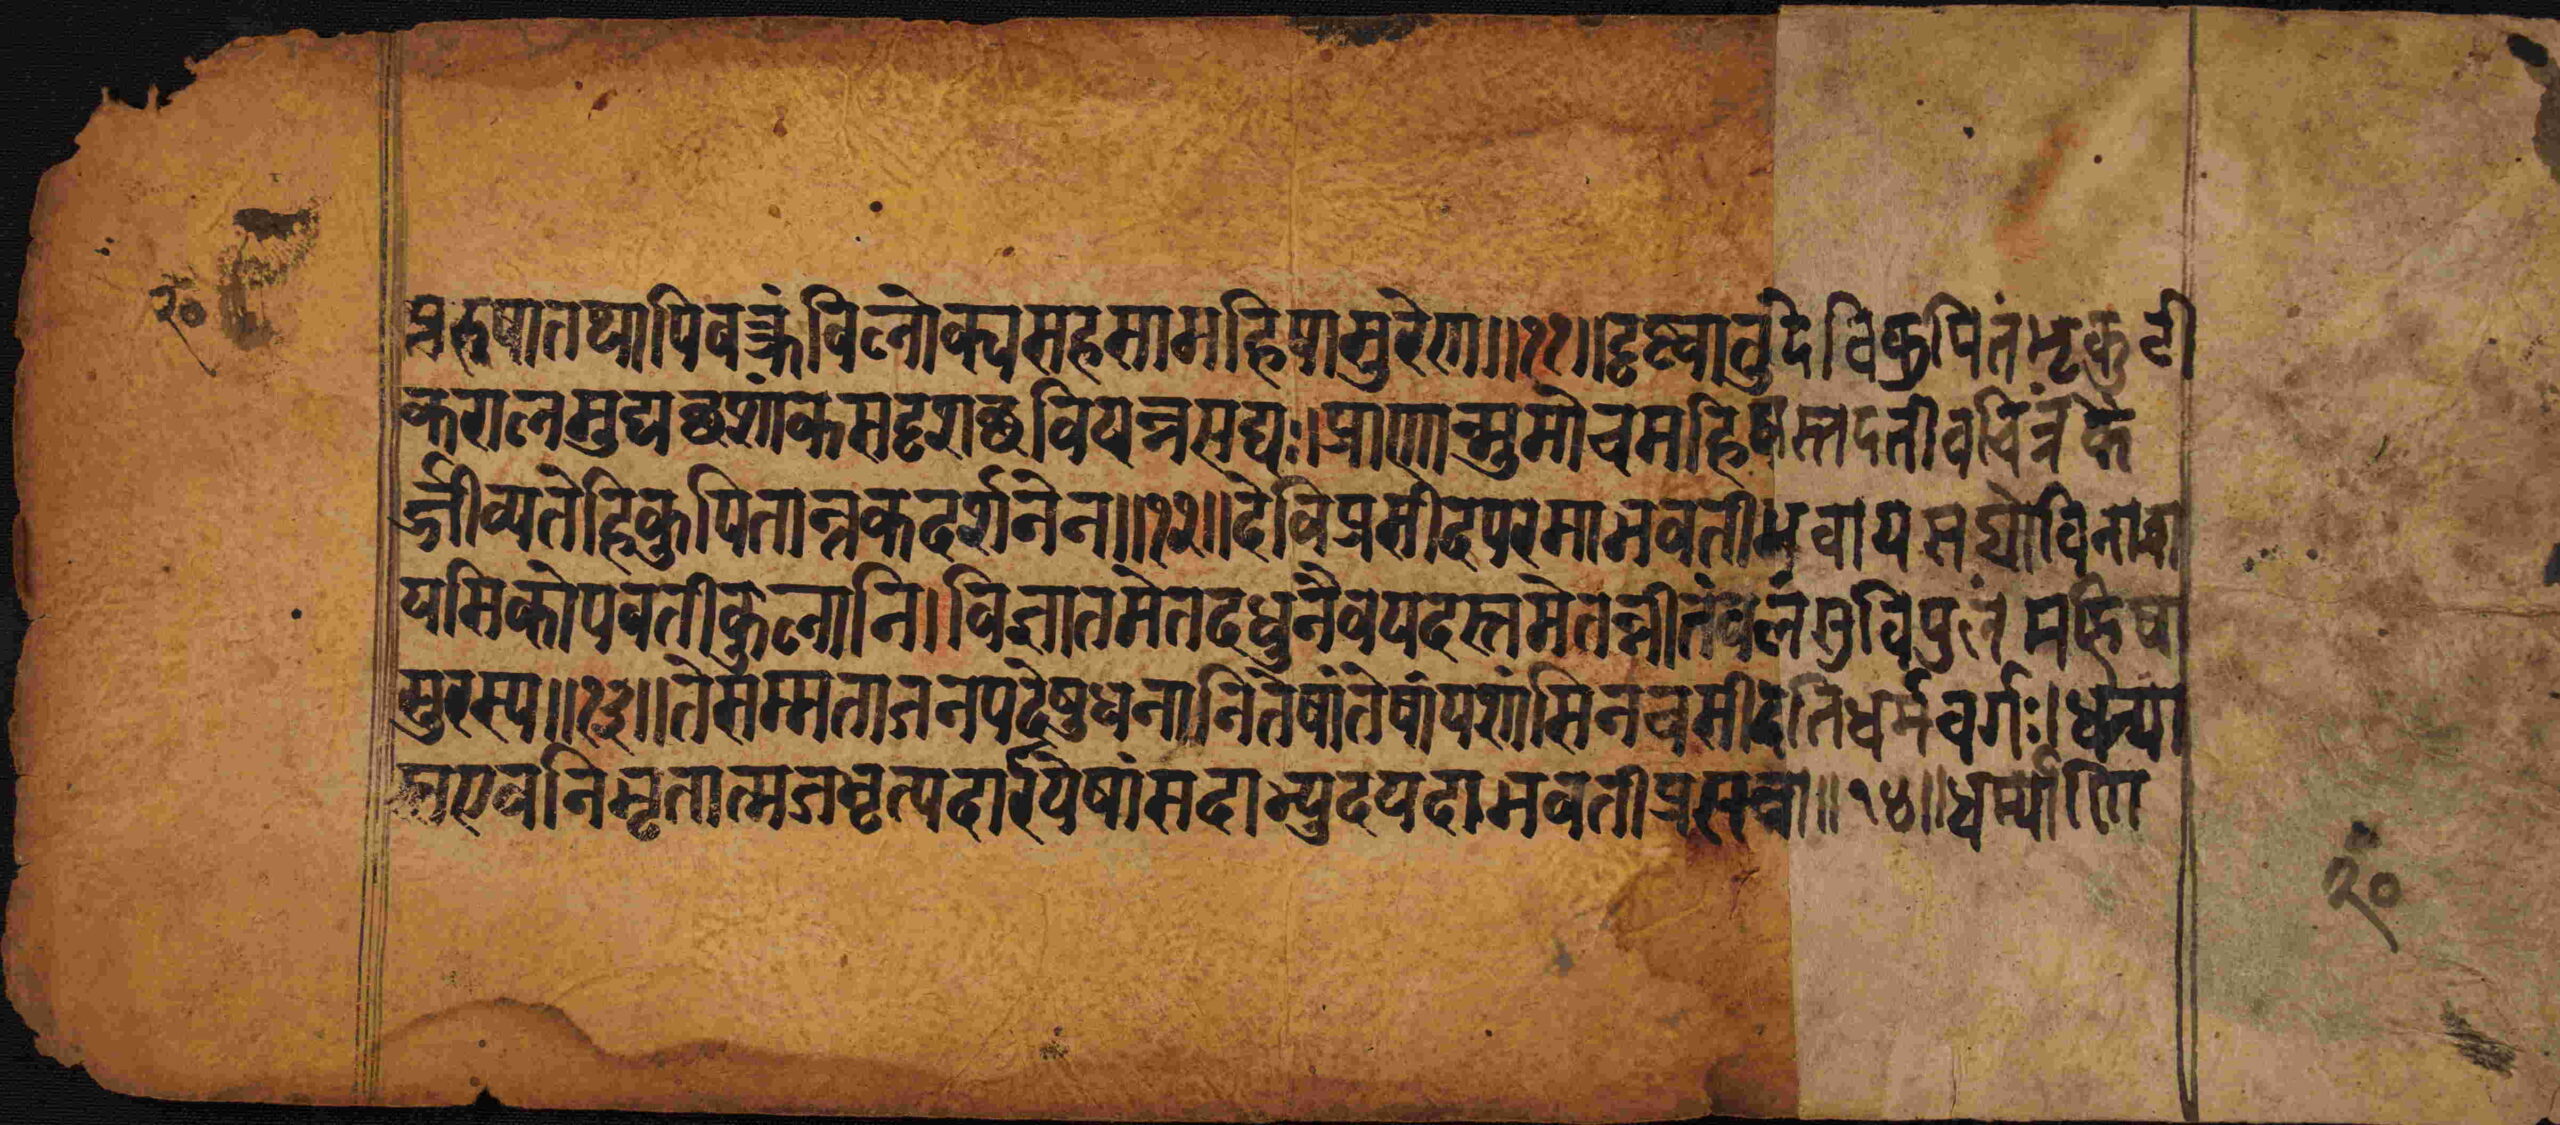 प्ररुषातथापिवक्त्रंविलोक्यसहसामहिषासुरेण॥११॥दृष्ट्वातुदेविकुपितंभृकुटी
करालमुद्यच्छशांकसदृशच्छवियन्नसद्यः।प्राणान्मुमोचमहिषस्तदतीवचित्रंकै
र्जीव्यतेहिकुपितान्तकदर्शनेन॥१२॥देविप्रसीदपरमाभवतीभवायसद्योविनाश
यसिकोपवतीकुलानि।विज्ञातमेतदधुनैवयदस्तमेतन्नीतंवलंसुविपुलंमहिषा
सुरस्य॥१३॥तेसम्मताजनपदेषुधनानितेषांतेषांयशांसिनचसीदतिधर्मवर्गः।धन्या
स्तएवनिभृतात्मजभृत्यदारायेषांसदाभ्युदयदाभवतीप्रसन्ना॥१४॥धर्म्याणि
२०
२०